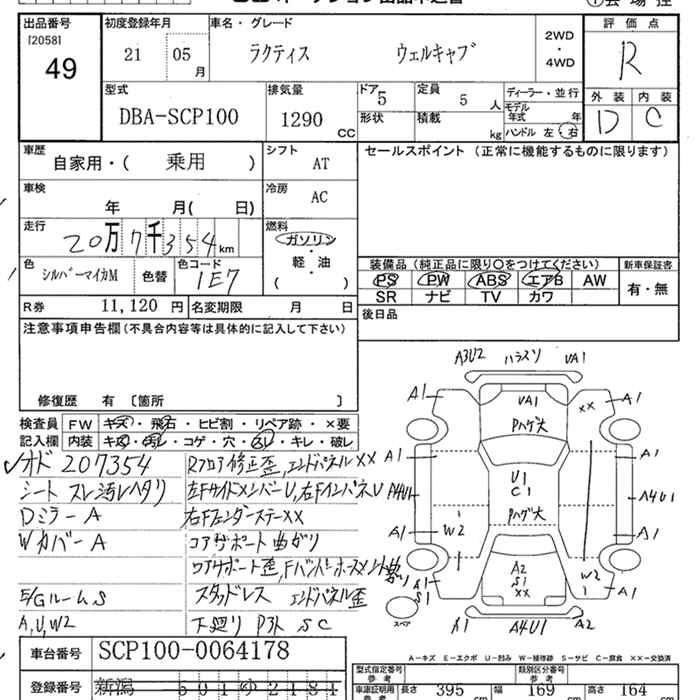 出品番号
[2058]
49
初度登録年月
21 05 月
車名・グレード
ラクティス ウェルキャブ
2WD
・
4WD
評価点
R
外装 内装
D C
型式
DBA-SCP100
排気量
1290 CC
ドア
5
定員
5 人
形状
積載
kg
ディーラー・並行
モデル年式 年
ハンドル 左 右
車歴
自家用・( 乗用 )
シフト
AT
車検
年 月( 日)
冷房
AC
走行
20万7千354km
燃料
ガソリン
・
軽・油
( )
色
シルバーマイカM
色替
色コード
1E7
R券 11,120 円
名変期限 月 日
セールスポイント (正常に機能するものに限ります)
装備品(純正品に限り○をつけてください)
PS PW ABS エアB AW
SR ナビ TV カワ
新車保証書
有・無
後日品
注意事項申告欄(不具合内容等は具体的に記入して下さい)
修復歴 有 〔箇所 〕
検査員
記入欄
FW キズ・飛石・ヒビ割・リペア跡・×要
内装 キズ・汚れ・コゲ・穴・スレ・キレ・破レ
オド 207354
シート スレ汚レヘタリ
Dミラー A
Wカバー A
E/Gルーム S
A,U,W2
Rフロア修正歪,エンドパネルXX
左FサイドメンバーU,右FインパネU
右FフェンダーステーXX
コアサポート曲がり
ロアサポート歪,Fバンパーホースメント曲り
スタッドレス エンドパネル歪
下廻り Pヌト SC
A3U2 ハラスソ UA1
A1 UA1 XX A1
Pハゲ大
A1 A1
U1
C1
A4U1 A4U1
Pハゲ大
A1 W2 A1
A2
S1
XX
W2
A1
S1
A1
スペア
A1 A4U1 A2
車台番号 SCP100-0064178
登録番号 新潟 501 ゆ 2181
A-キズ E-エクボ U-凹み W-補修跡 S-サビ C-腐食 XX-交換済
型式指定番号
参考
類別区分番号
参考
車庫証明用
参考
長さ 395 幅 169 高さ 164